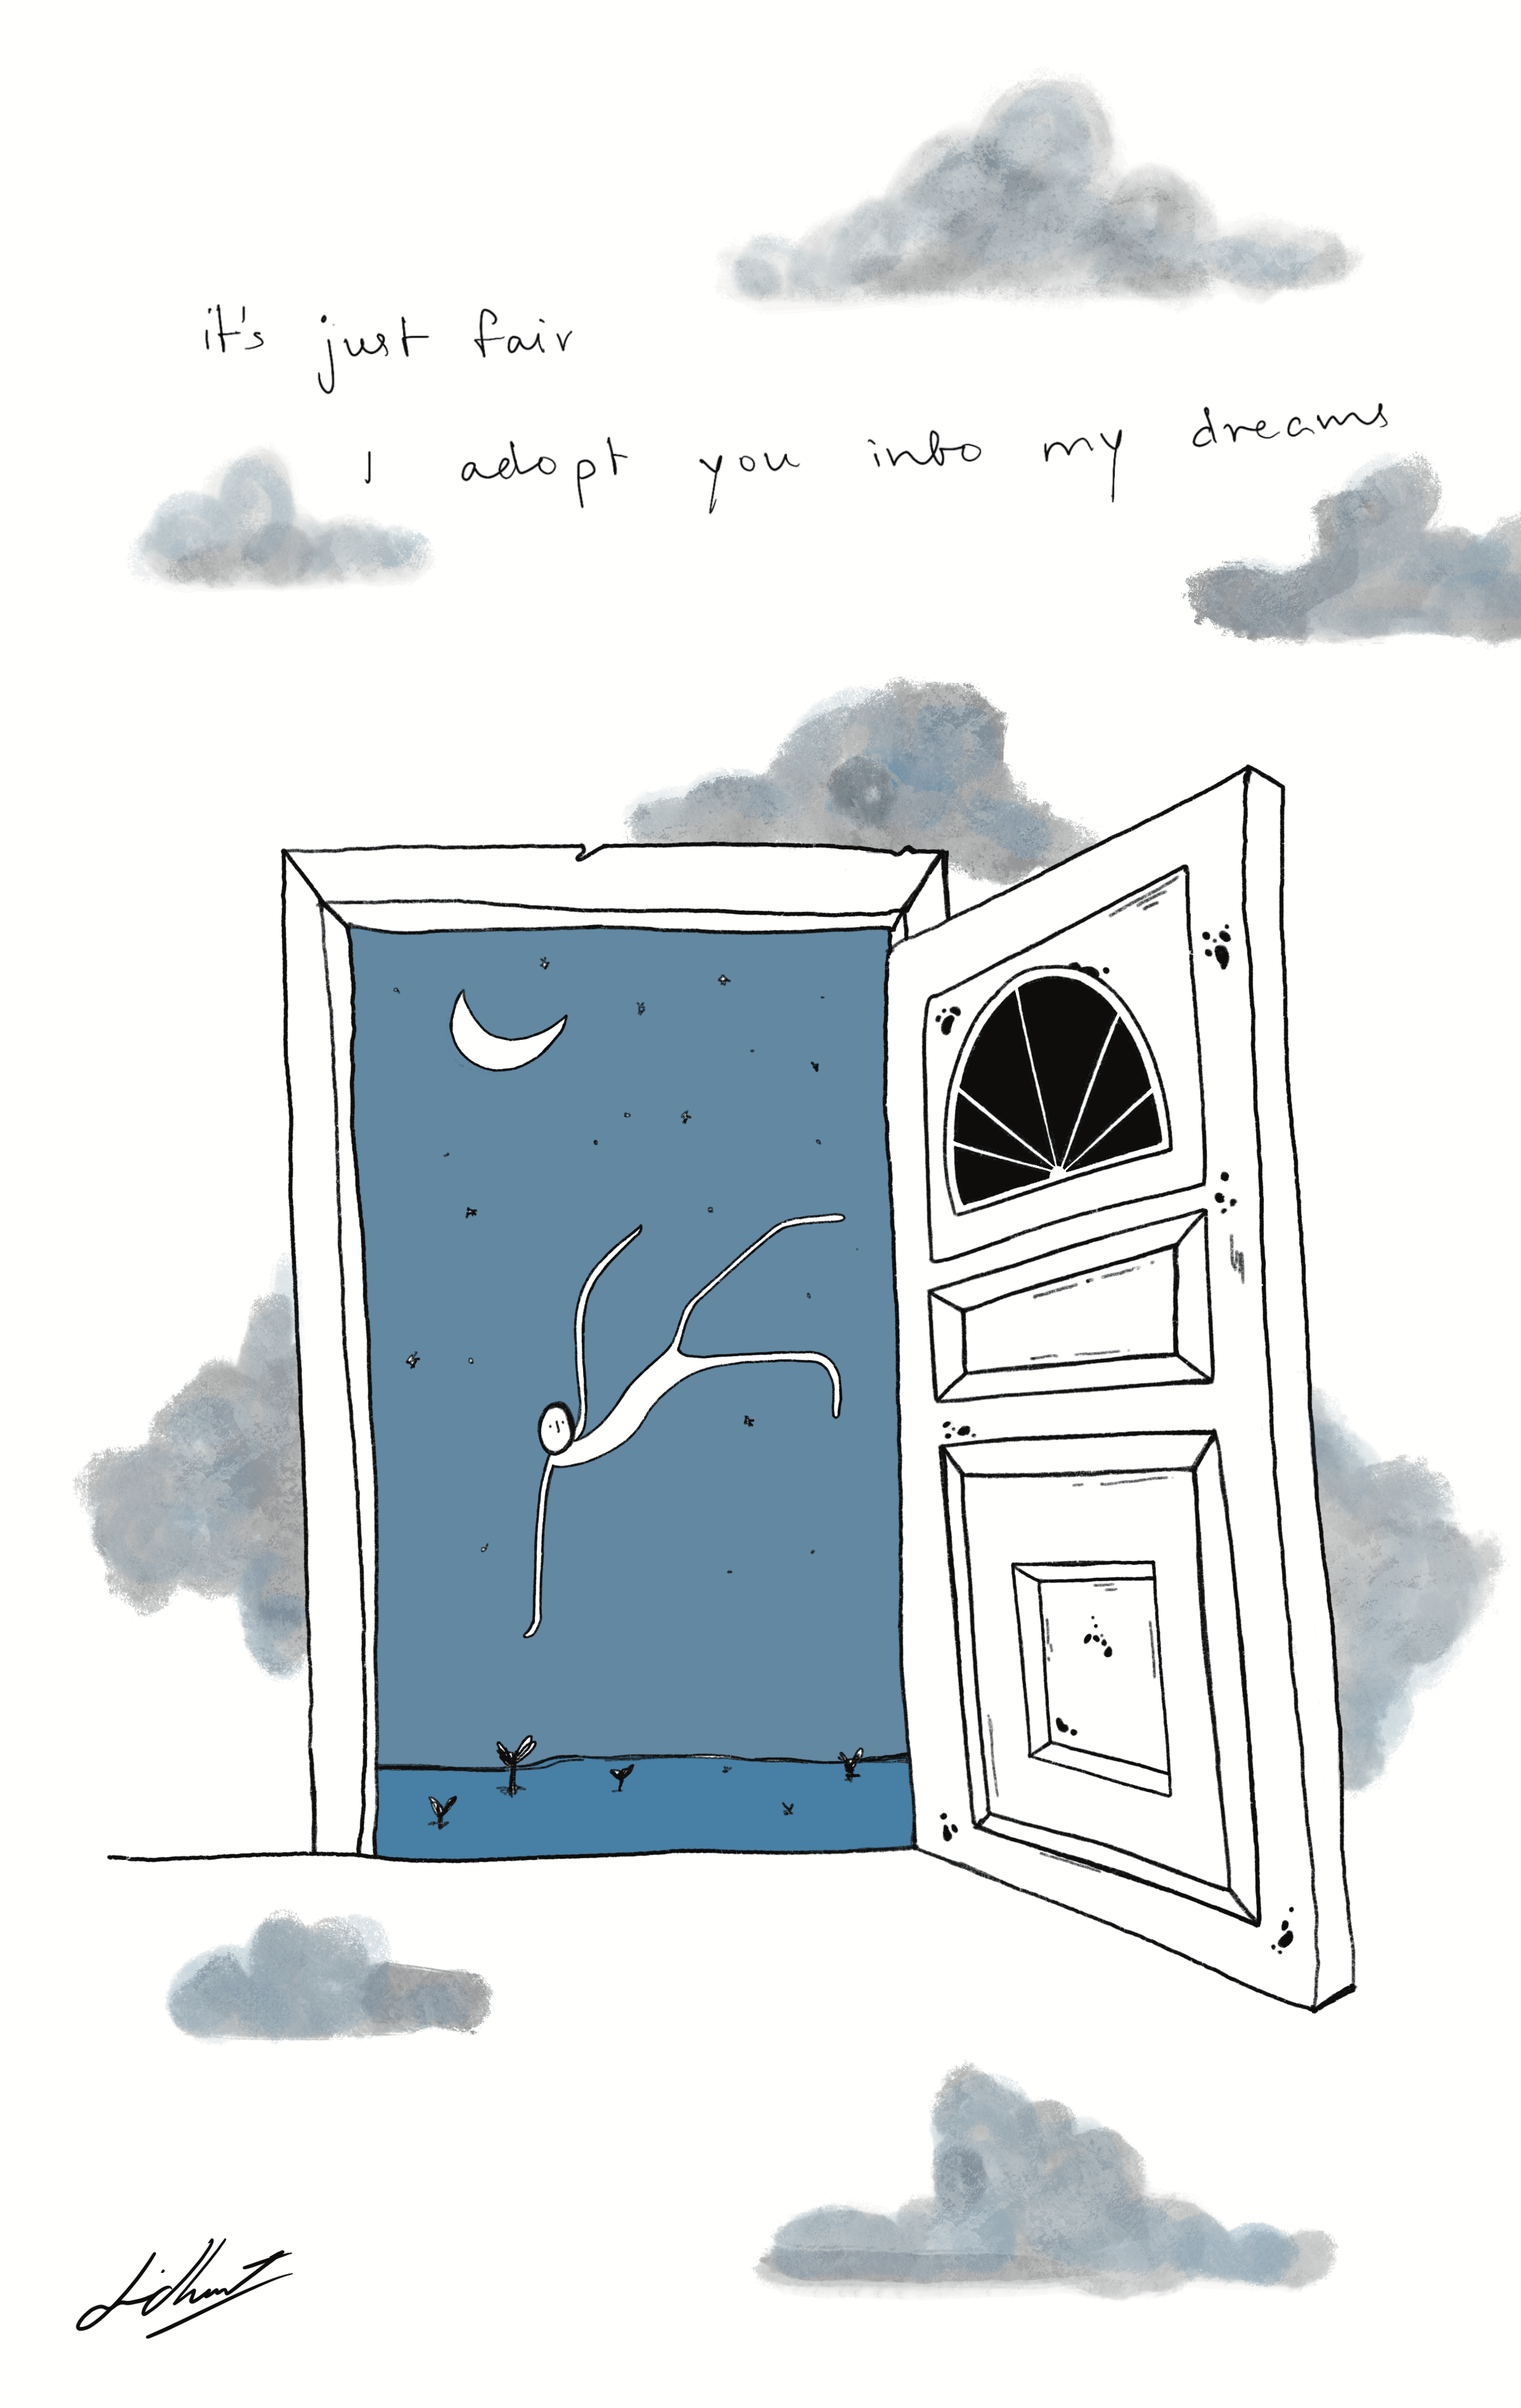 it's just fair
I adopt you into my dreams